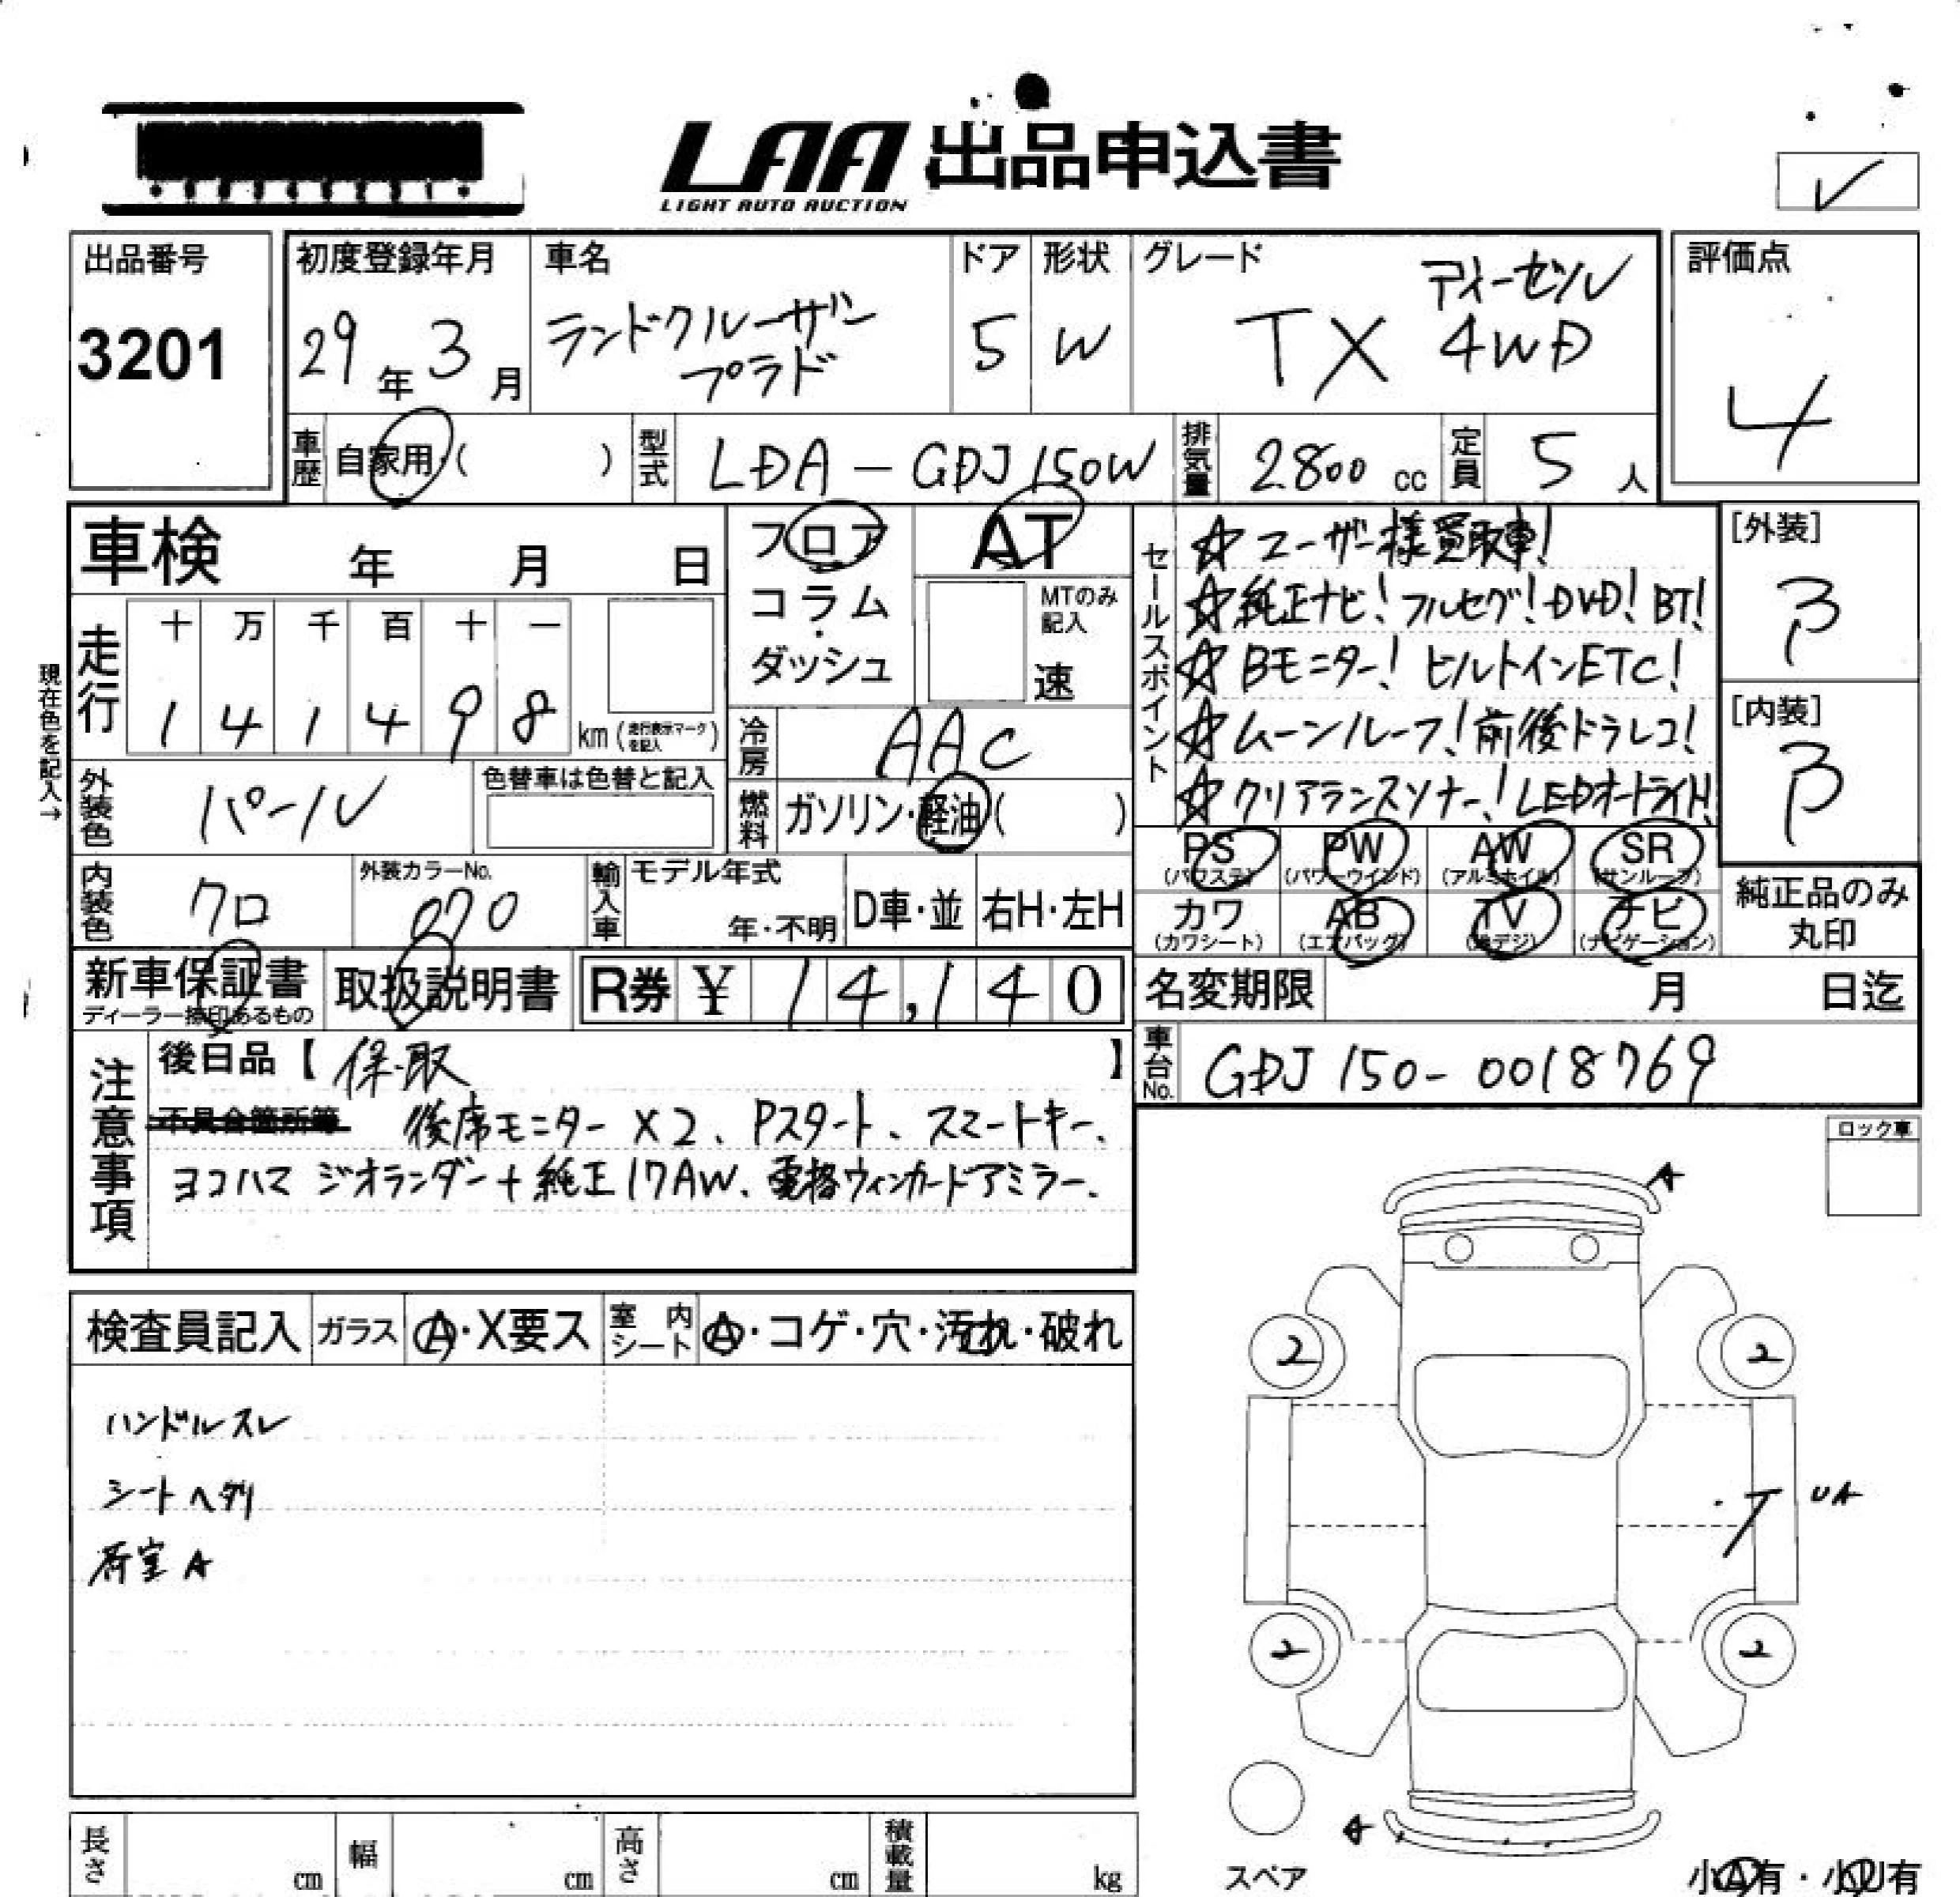 LAA 出品申込書
LIGHT AUTO AUCTION
✓
出品番号
3201
初度登録年月
29年 3月
車名
ランドクルーザー
プラド
ドア
5
形状
W
グレード
ディーゼル
TX 4WD
評価点
4
車歴 自家用・( )
型式 LDA-GDJ150W
排気量 2800 cc
定員 5人
車検 年 月 日
現在色を記入→
走行
十 万 千 百 十 一
1 4 1 4 9 8 km (走行表示マークを記入)
外装色 パール
色替車は色替と記入
内装色 クロ
外装カラーNo.
070
フロア
コラム
・
ダッシュ
AT
MTのみ記入
速
冷房 AAC
燃料 ガソリン・軽油( )
輸入車 モデル年式
年・不明
D車・並
右H・左H
セールスポイント
☆ユーザー様買取車!
☆純正ナビ!フルセグ!DVD!BT!
☆Bモニター!ビルトインETC!
☆ムーンルーフ!前後ドラレコ!
☆クリアランスソナー!LEDオートライト!
[外装]
B
[内装]
B
PS (パワステ)
PW (パワーウインド)
AW (アルミホイル)
SR (サンルーフ)
カワ (カワシート)
AB (エアバッグ)
TV (地デジ)
ナビ (ナビゲーション)
純正品のみ
丸印
新車保証書
ディーラー捺印あるもの
取扱説明書
R券 ¥ 14,140
名変期限 月 日迄
車台No. GDJ150-0018769
注意事項
後日品【 保.取 】
不具合箇所等 後席モニター×2、Pスタート、スマートキー、
ヨコハマ ジオランダー+純正17AW、電格ウィンカードアミラー、
ロック車
検査員記入
ガラス A・X要ス
室内シート A・コゲ・穴・汚れ・破れ
ハンドルスレ
シートヘタリ
荷室A
A
2 2
UA
2 2
A
スペア
小A有・小U有
長さ cm
幅 cm
高さ cm
積載量 kg